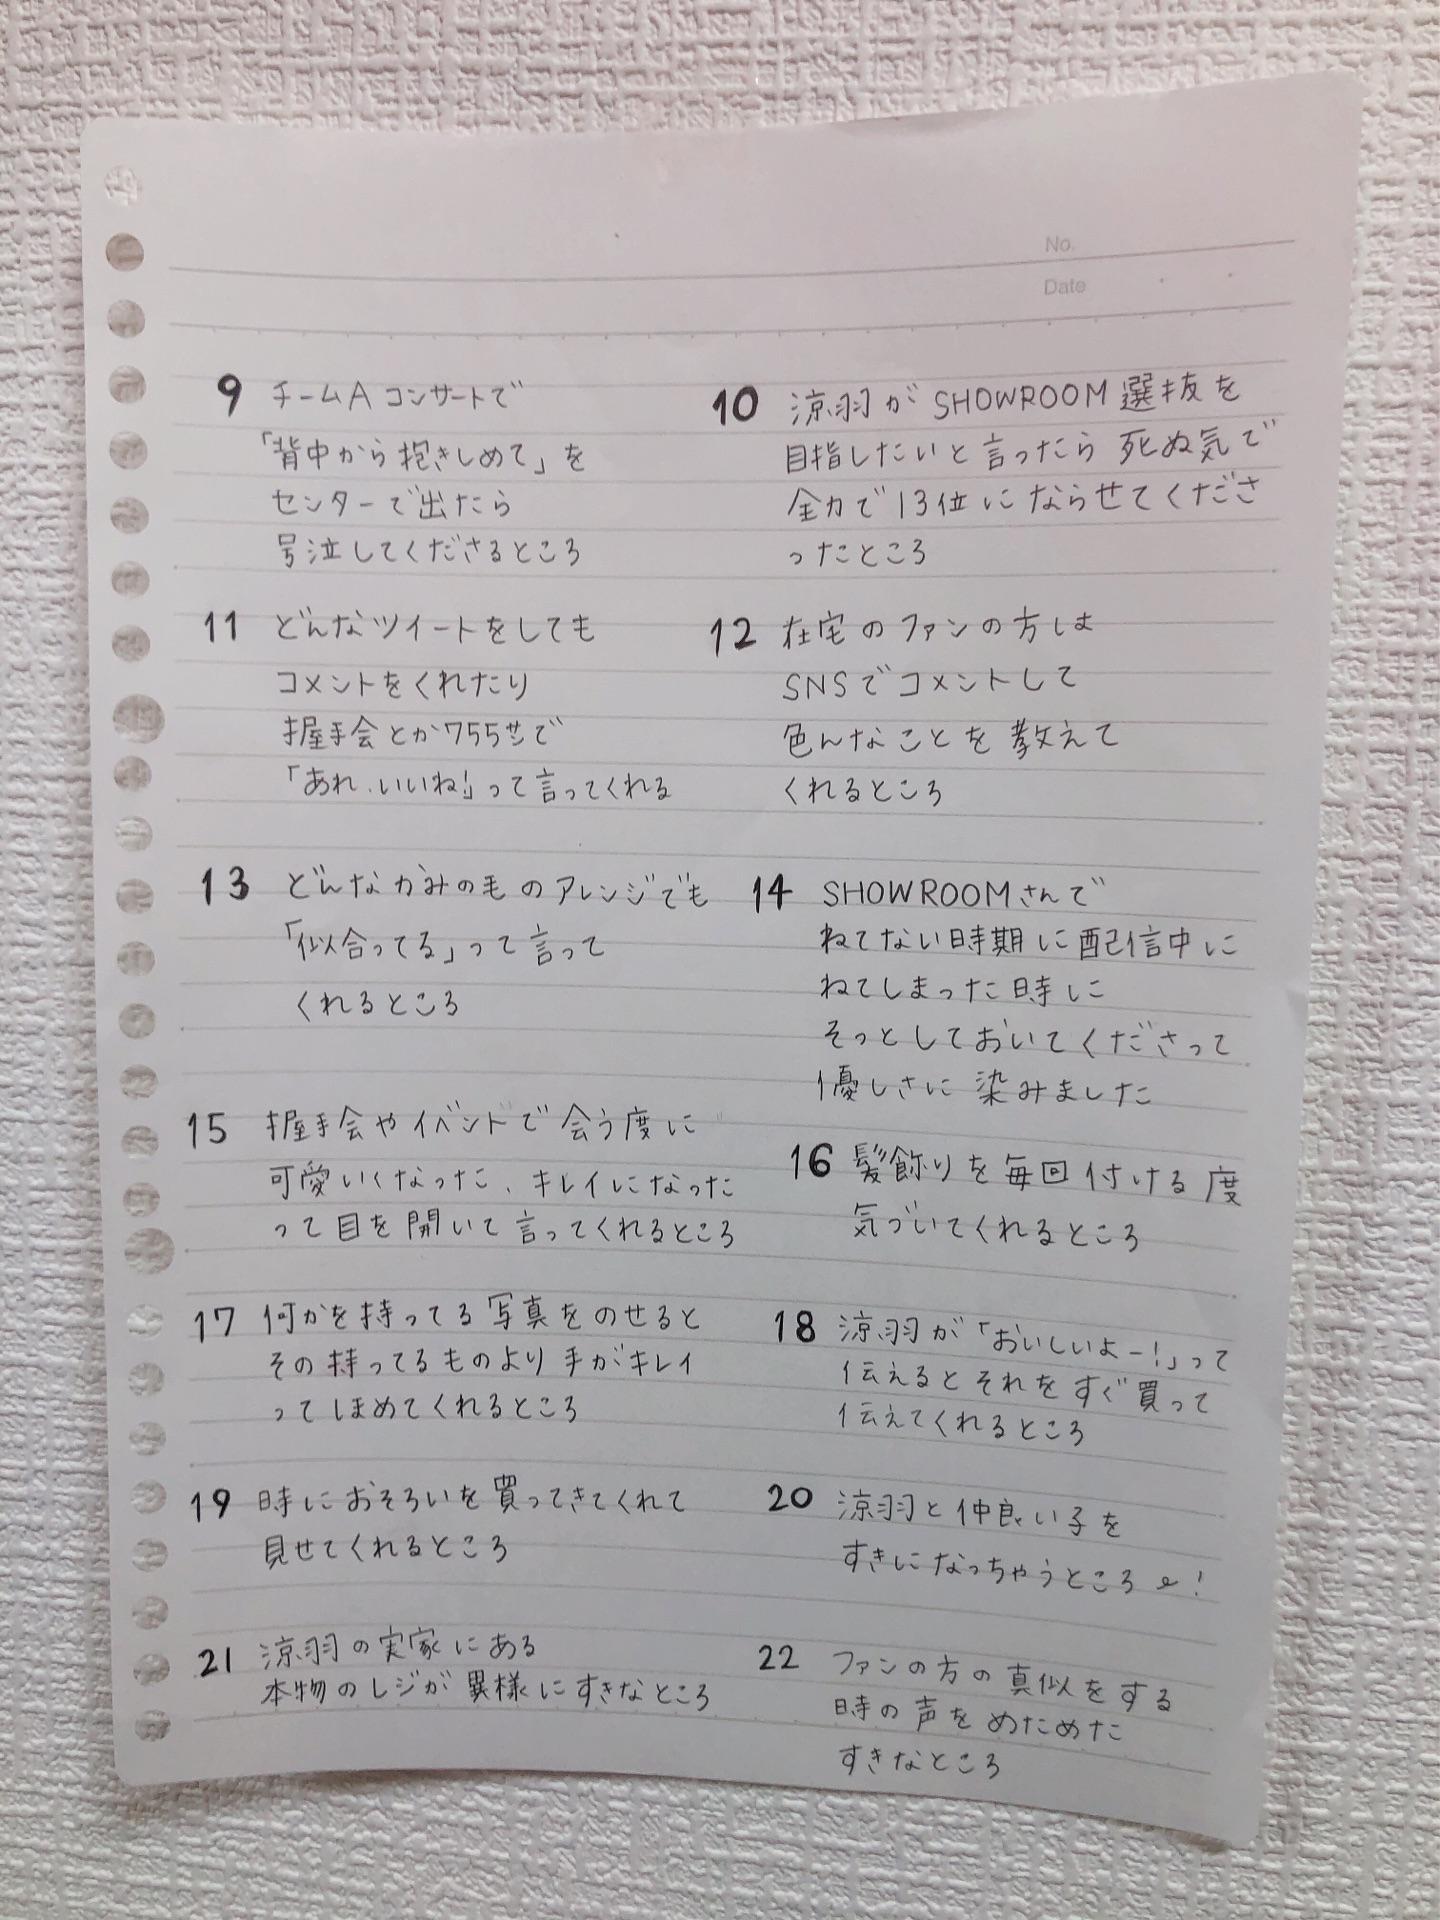 No.
Date
9 チームAコンサートで
「背中から抱きしめて」を
センターで出たら
号泣してくださるところ
10 涼羽がSHOWROOM選抜を
目指したいと言ったら死ぬ気で
全力で13位にならせてくださ
ったところ
11 どんなツイートをしても
コメントをくれたり
握手会とか755で
「あれ、いいね!」って言ってくれる
12 在宅のファンの方は
SNSでコメントして
色んなことを教えて
くれるところ
13 どんなかみの毛のアレンジでも
「似合ってる」って言って
くれるところ
14 SHOWROOMさんで
ねてない時期に配信中に
ねてしまった時に
そっとしておいてくださって
優しさに染みました
15 握手会やイベントで会う度に
可愛いくなった、キレイになった
って目を開いて言ってくれるところ
16 髪飾りを毎回付ける度
気づいてくれるところ
17 何かを持ってる写真をのせると
その持ってるものより手がキレイ
ってほめてくれるところ
18 涼羽が「おいしいよー!」って
伝えるとそれをすぐ買って
伝えてくれるところ
19 時におそろいを買ってきてくれて
見せてくれるところ
20 涼羽と仲良い子を
すきになっちゃうところ!
21 涼羽の実家にある
本物のレジが異様にすきなところ
22 ファンの方の真似をする
時の声をめためた
すきなところ